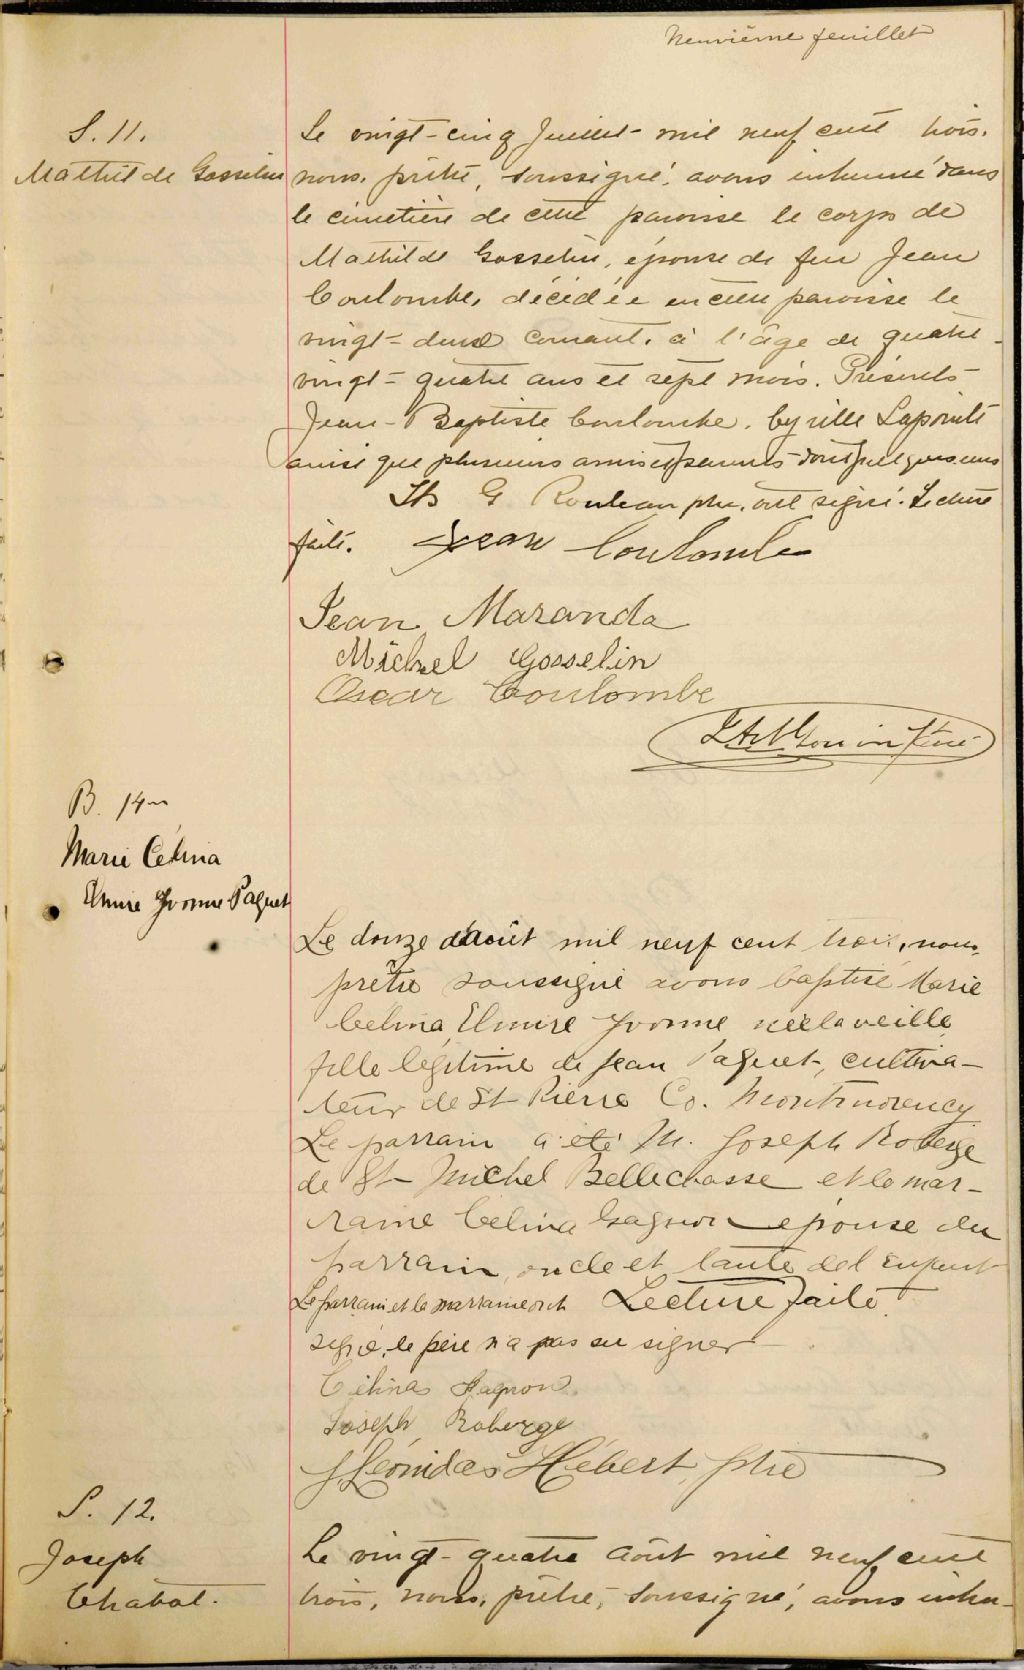 Neuvième feuillet
S. 11.
Mathilde Gosselin
Le vingt-cinq Juillet mil neuf cent trois.
nous, prêtre, soussigné, avons inhumé dans
le cimetière de cette paroisse le corps de
Mathilde Gosselin, épouse de feu Jean
Coulombe, décédée en cette paroisse le
vingt-deux courant, à l'âge de quatre-
vingt-quatre ans et sept mois. Présents
Jean-Baptiste Coulombe, Cyrille Lapointe
ainsi que plusieurs amis et parents dont quelques uns
G Rouleau ptre, ont signé. Lecture
faite. Jean Coulombe
Jean Maranda
Michel Gosselin
Oscar Coulombe
B. 14
Marie Célina
Elmire Yvonne Paquet
Le douze d'août mil neuf cent trois, nous,
prêtre soussigné avons baptisé Marie
Celina, Elmire Yvonne née la veille,
fille légitime de Jean Paquet, cultiva-
teur de St Pierre Co. Montmorency
Le parrain a été M. Joseph Roberge
de St Michel Bellechasse et la mar-
raine Celina Gagnon épouse du
parrain, oncle et tante de l'enfant
Le parrain et la marraine ont Lecture faite.
signé, le père n'a pas su signer
Célina Gagnon
Joseph Roberge
J Léonidas Hébert ptre
S. 12.
Joseph
Chabot.
Le vingt-quatre août mil neuf cent
trois, nous, prêtre, soussigné, avons inhu-